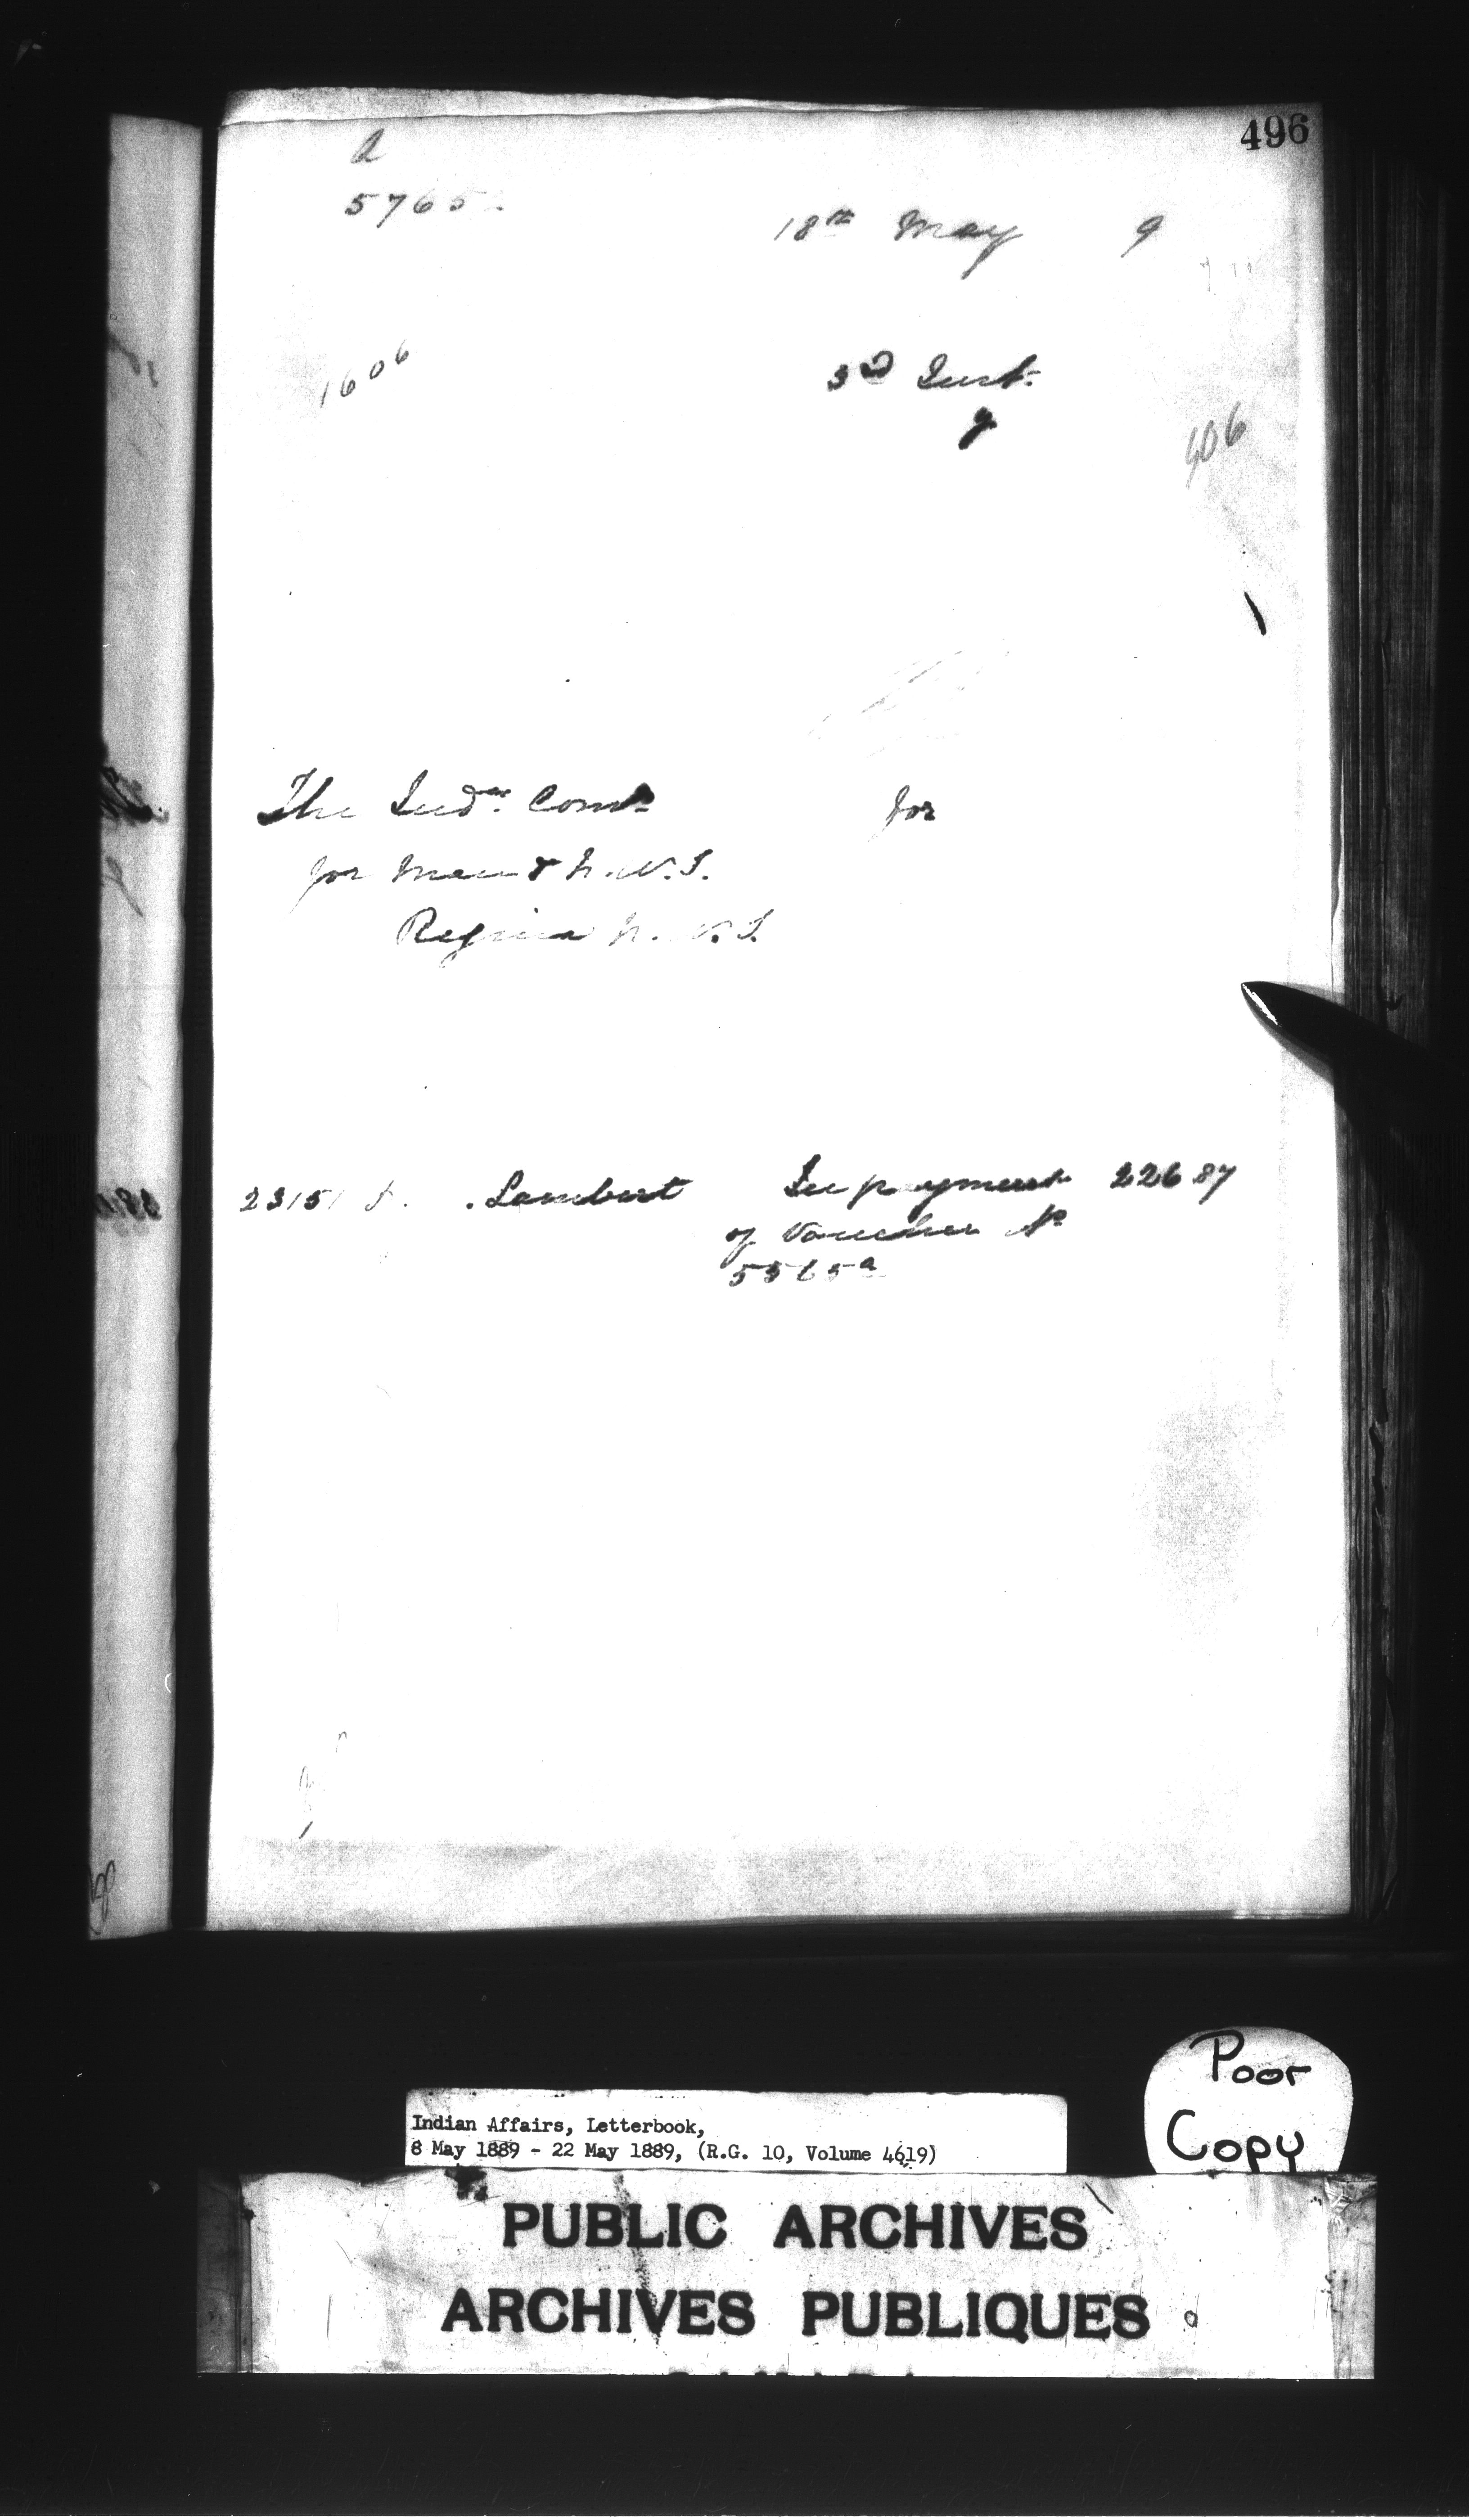 496
a
57652
18th May 9
1606
3d Inst.
y
406
The Indn. Comr. for
for Man & N.W.T.
Regina N.W.T.
23151 Lambert In payment 226 87
of Voucher No
5565a
Poor
Copy
Indian Affairs, Letterbook,
8 May 1889 - 22 May 1889, (R.G. 10, Volume 4619)
PUBLIC ARCHIVES
ARCHIVES PUBLIQUES